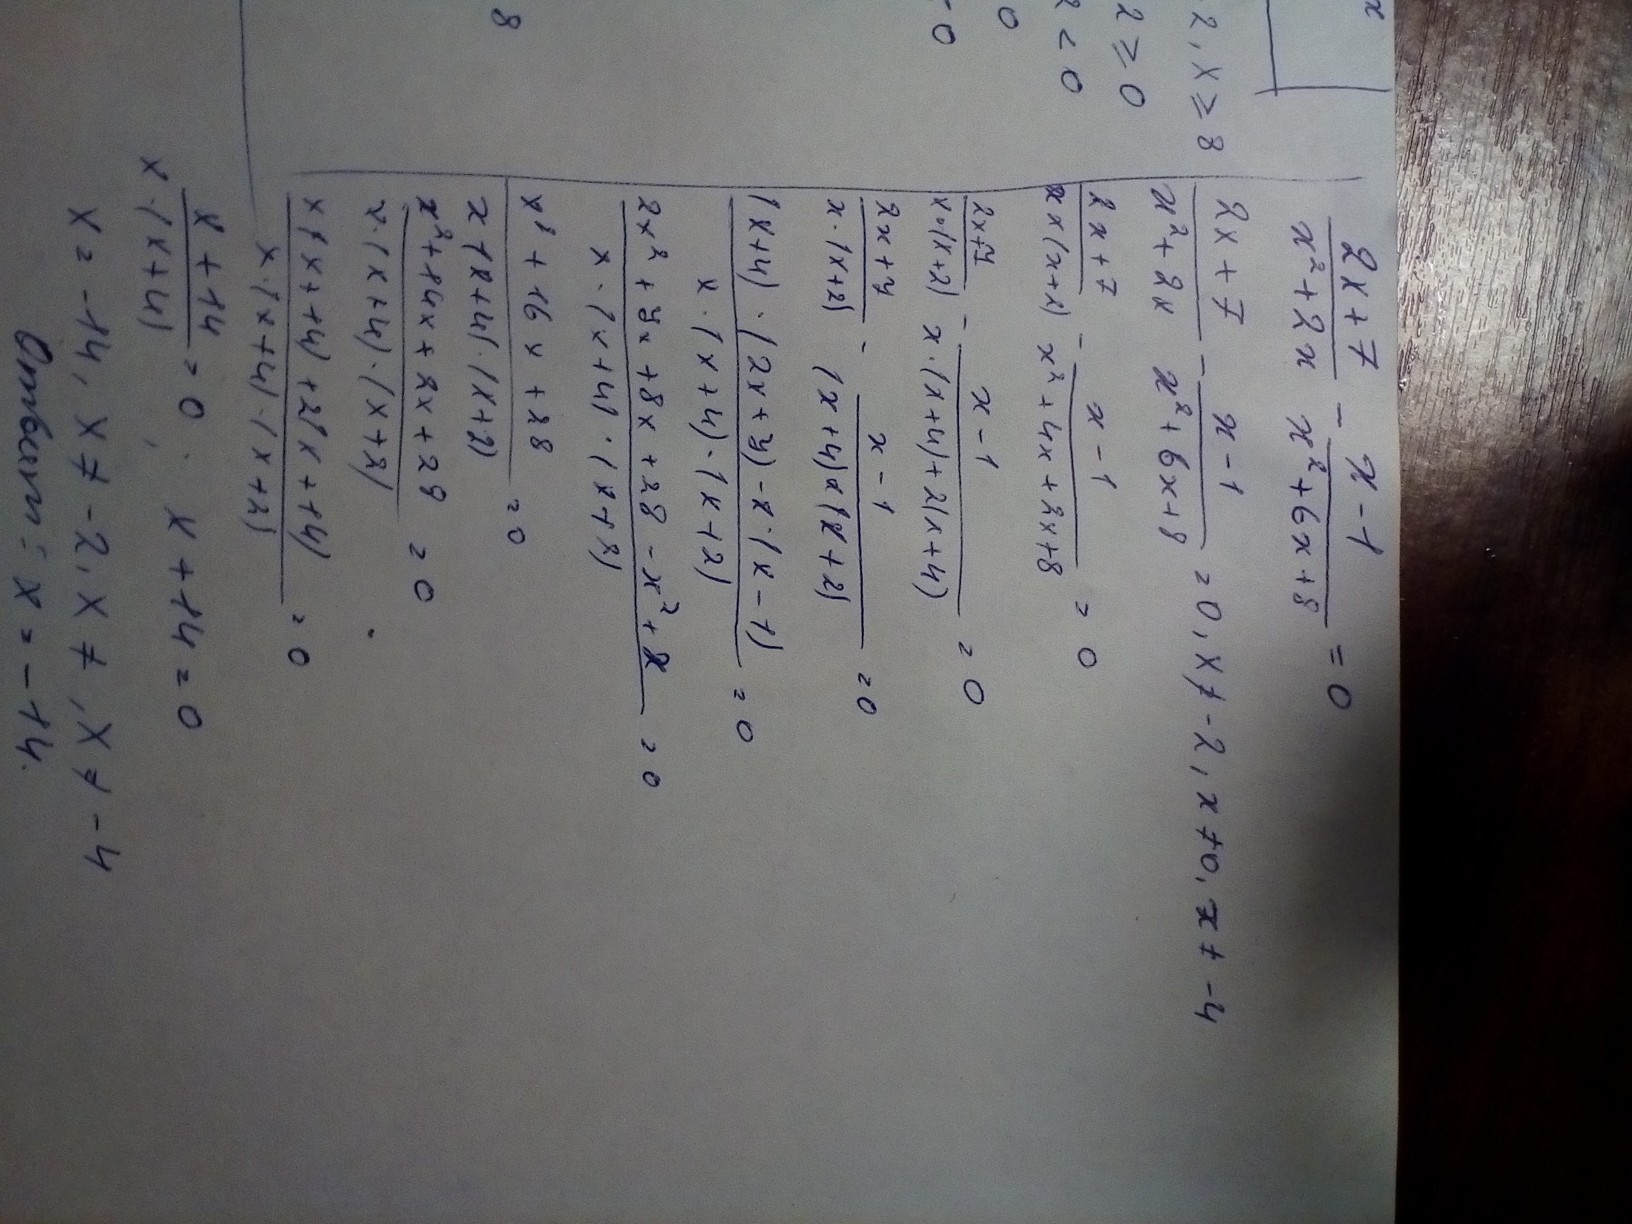 x
2, x ≥ 8
2 ≥ 0
2 < 0
0
- 0
8
(2x+7)/(x²+2x) - (x-1)/(x²+6x+8) = 0
(2x+7)/(x²+2x) - (x-1)/(x²+6x+8) = 0, x ≠ -2, x ≠ 0, x ≠ -4
(2x+7)/(x(x+2)) - (x-1)/(x²+4x+2x+8) = 0
(2x+7)/(x·(x+2)) - (x-1)/(x·(x+4)+2(x+4)) = 0
(2x+7)/(x·(x+2)) - (x-1)/((x+4)·(x+2)) = 0
((x+4)·(2x+7)-x·(x-1))/(x·(x+4)·(x+2)) = 0
(2x²+7x+8x+28-x²+x)/(x·(x+4)·(x+2)) = 0
(x²+16x+28)/(x·(x+4)·(x+2)) = 0
(x²+14x+2x+28)/(x·(x+4)·(x+2)) = 0
(x(x+14)+2(x+14))/(x·(x+4)·(x+2)) = 0
(x+14)/(x·(x+4)) = 0, x+14=0
x = -14, x ≠ -2, x ≠ , x ≠ -4
Ответ: x = -14.